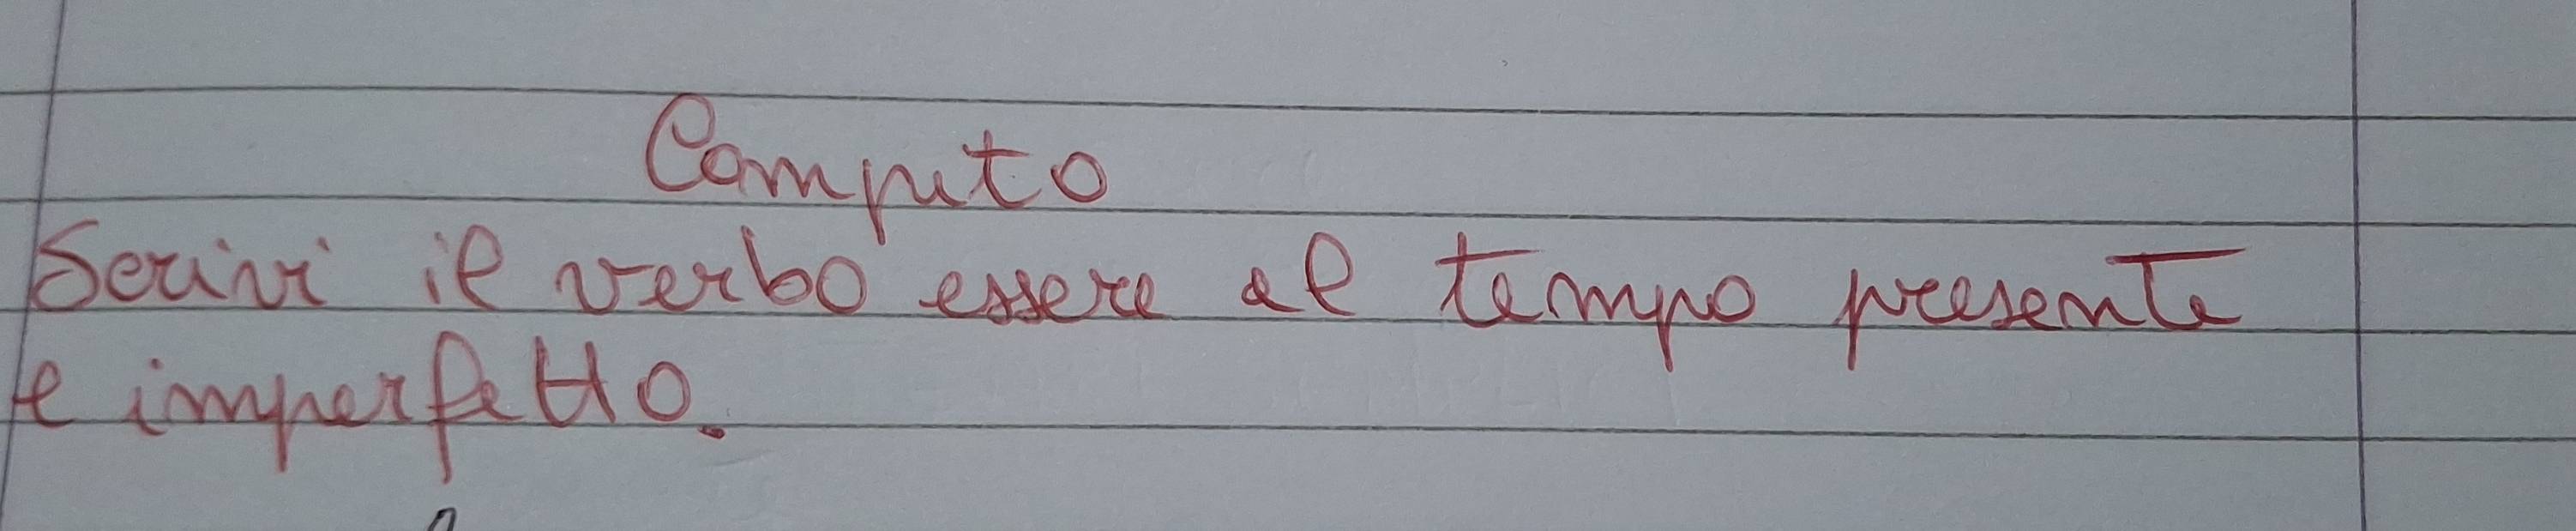 Compito
Scrivi il verbo essere al tempo presente
e imperfetto.